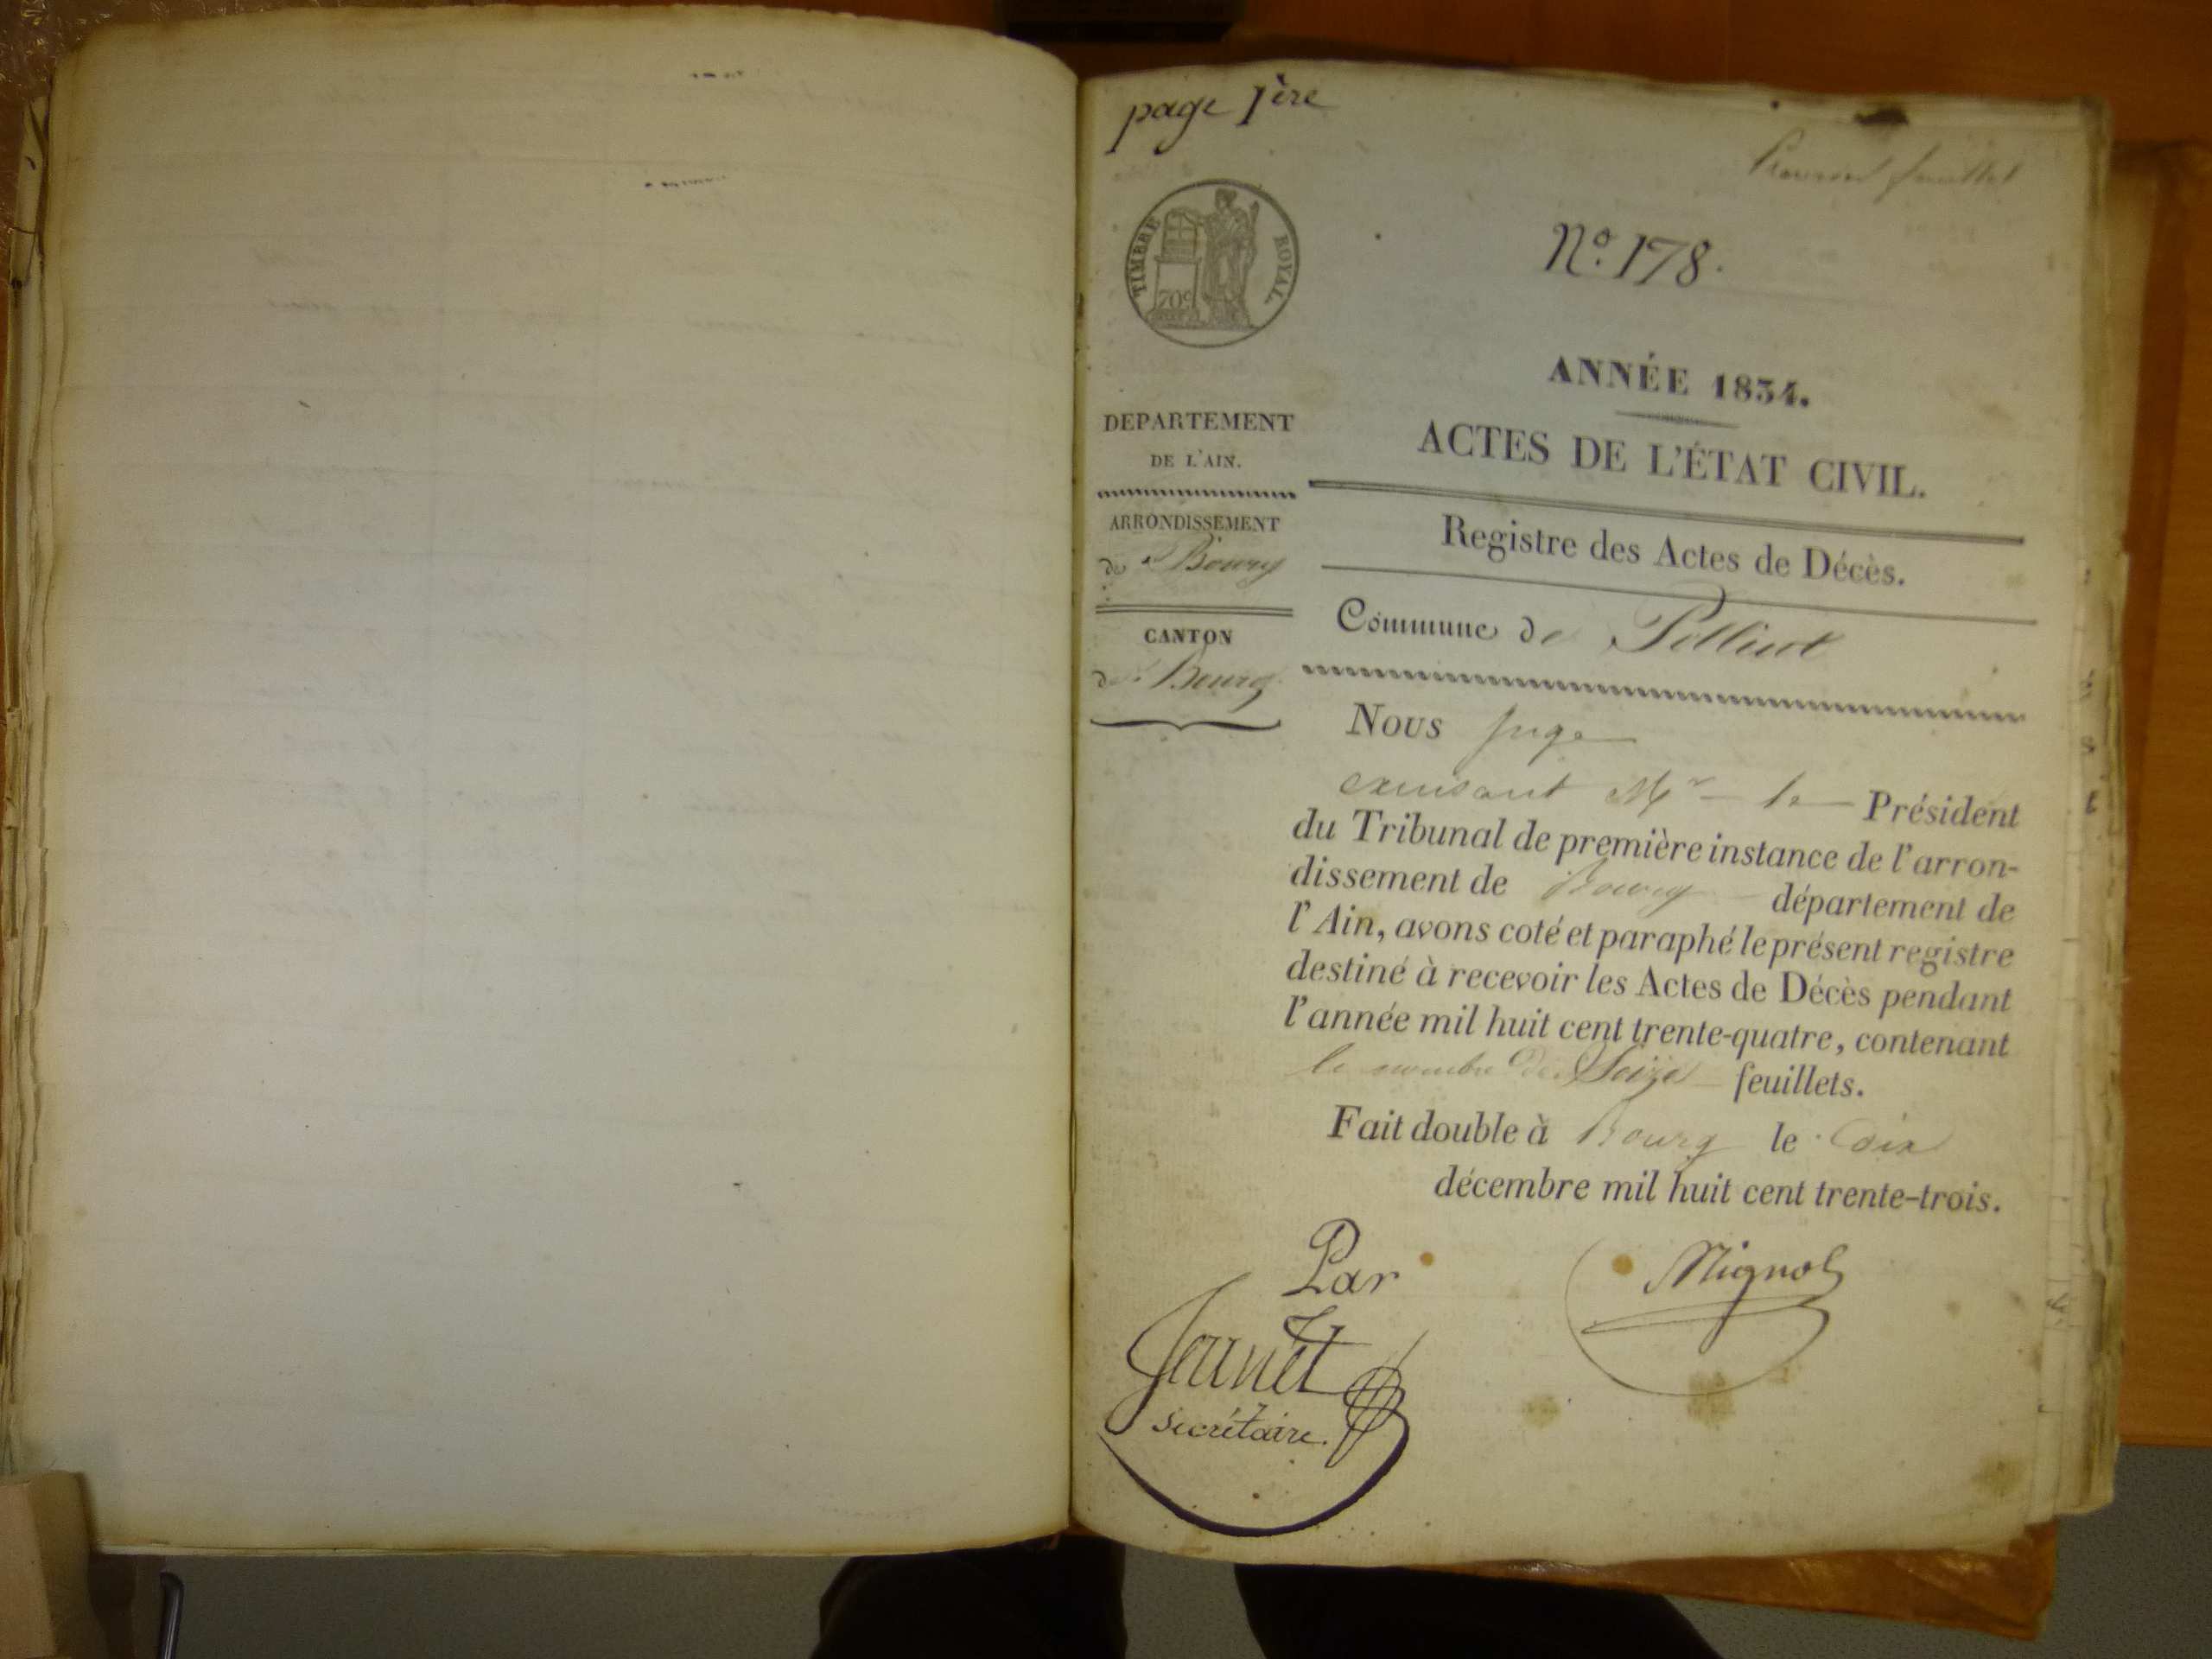 page 1ère
Premier feuillet
TIMBRE ROYAL
70c
Nº 178.
ANNÉE 1834.
ACTES DE L'ÉTAT CIVIL.
Registre des Actes de Décès.
DEPARTEMENT
DE L'AIN.
ARRONDISSEMENT
de Bourg
CANTON
de Bourg
Commune de Polliat
Nous Juge
Mr le Président
du Tribunal de première instance de l'arron-
dissement de Bourg département de
l'Ain, avons coté et paraphé le présent registre
destiné à recevoir les Actes de Décès pendant
l'année mil huit cent trente-quatre, contenant
le nombre de Seize feuillets.
Fait double à Bourg le dix
décembre mil huit cent trente-trois.
Par
Mignot
Jeunet
Secrétaire.